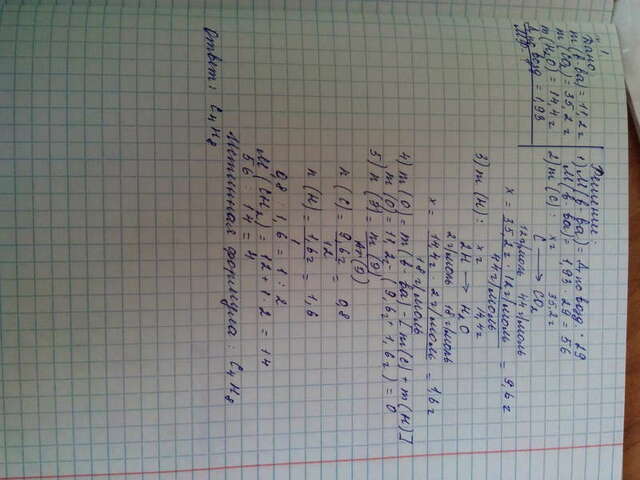 № 1.
Дано:
m(в-ва) = 11,2г
m(CO₂) = 35,2г
m(H₂O) = 14,4г
Д по возд. = 1,93
Решение:
1) M(в-ва) = Д по возд · 29
M(в-ва) = 1,93 · 29 = 56
2) m(C): x г 35,2г
C → CO₂
12г/моль 44г/моль
x = 35,2г · 12г/моль / 44г/моль = 9,6г
3) m(H): x г 14,4г
2H → H₂O
2г/моль 18г/моль
x = 14,4г · 2г/моль / 18г/моль = 1,6г
4) m(O) = m(в-ва) - [m(C) + m(H)]
m(O) = 11,2 - (9,6г + 1,6г) = 0
5) n(Э) = m(Э) / Ar(Э)
n(C) = 9,6г / 12 = 0,8
n(H) = 1,6г / 1 = 1,6
0,8 : 1,6 = 1 : 2
M(CH₂) = 12 + 1 · 2 = 14
56 : 14 = 4
Истинная формула: C₄H₈
Ответ: C₄H₈